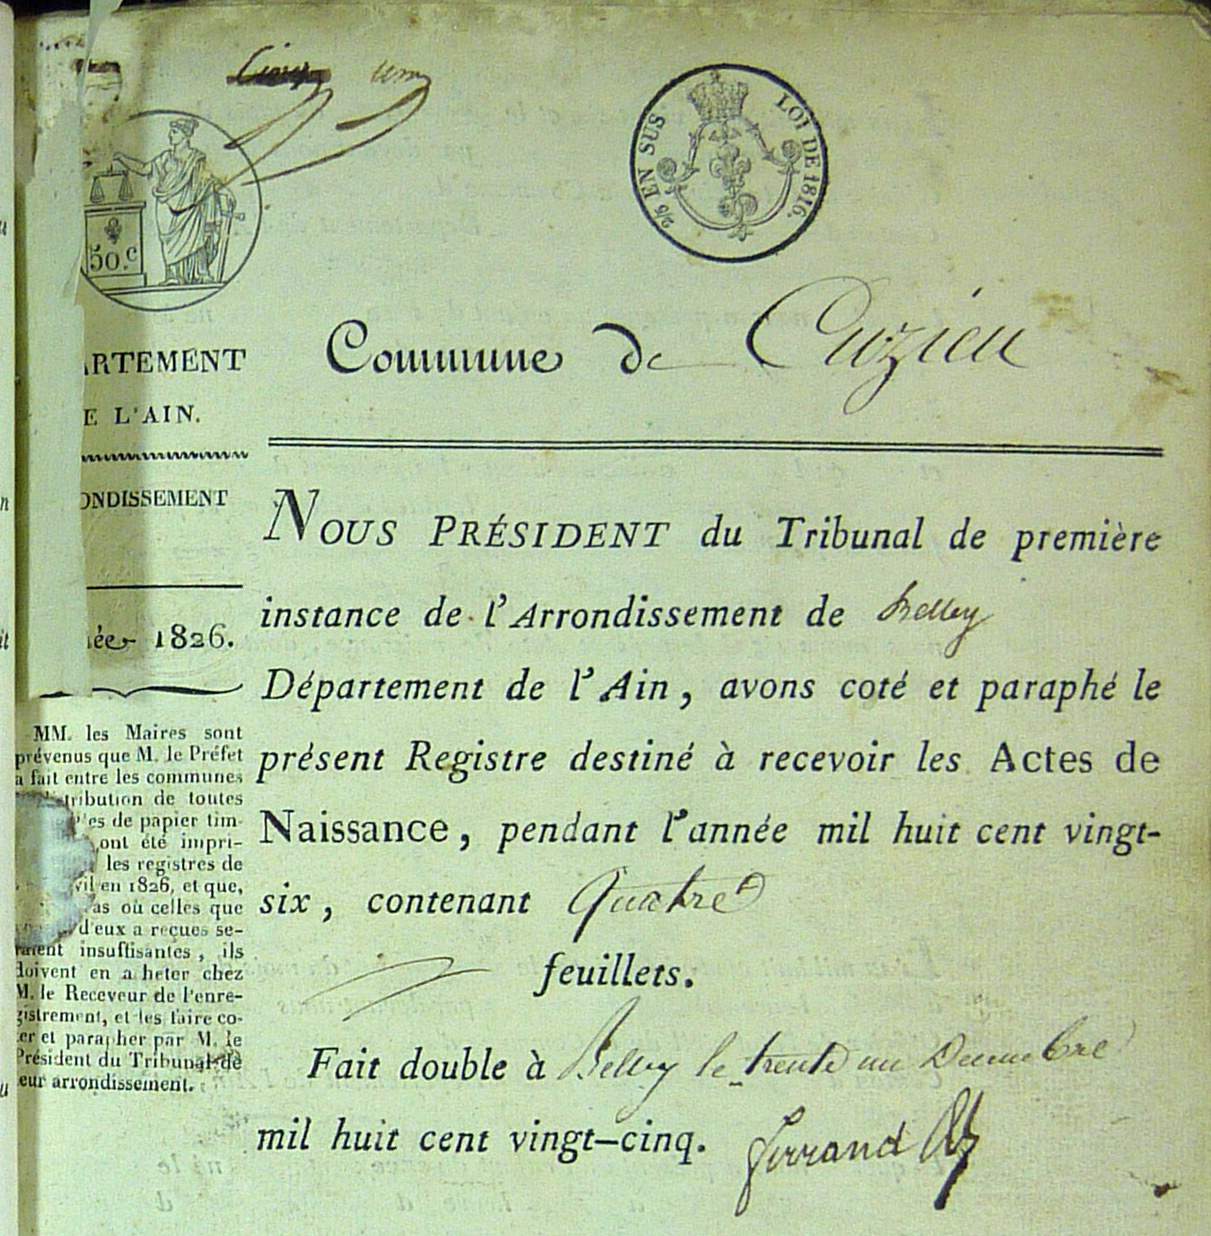 un
2/5 EN SUS
LOI DE 1816.
50.c
ARTEMENT
E L'AIN.
ONDISSEMENT
ée 1826.
MM. les Maires sont
prévenus que M. le Préfet
a fait entre les communes
tribution de toutes
es de papier tim-
ont été impri-
les registres de
vil en 1826, et que,
as où celles que
d'eux a reçues se-
raient insuffisantes, ils
doivent en a heter chez
M. le Receveur de l'enre-
gistrement, et les faire co-
ter et parapher par M. le
Président du Tribunal de
leur arrondissement.
Commune de Cuzieu
NOUS PRÉSIDENT du Tribunal de première
instance de l'Arrondissement de Belley
Département de l'Ain, avons coté et paraphé le
présent Registre destiné à recevoir les Actes de
Naissance, pendant l'année mil huit cent vingt-
six, contenant quatre
feuillets.
Fait double à Belley le trente un Decembre
mil huit cent vingt-cinq. ferrand